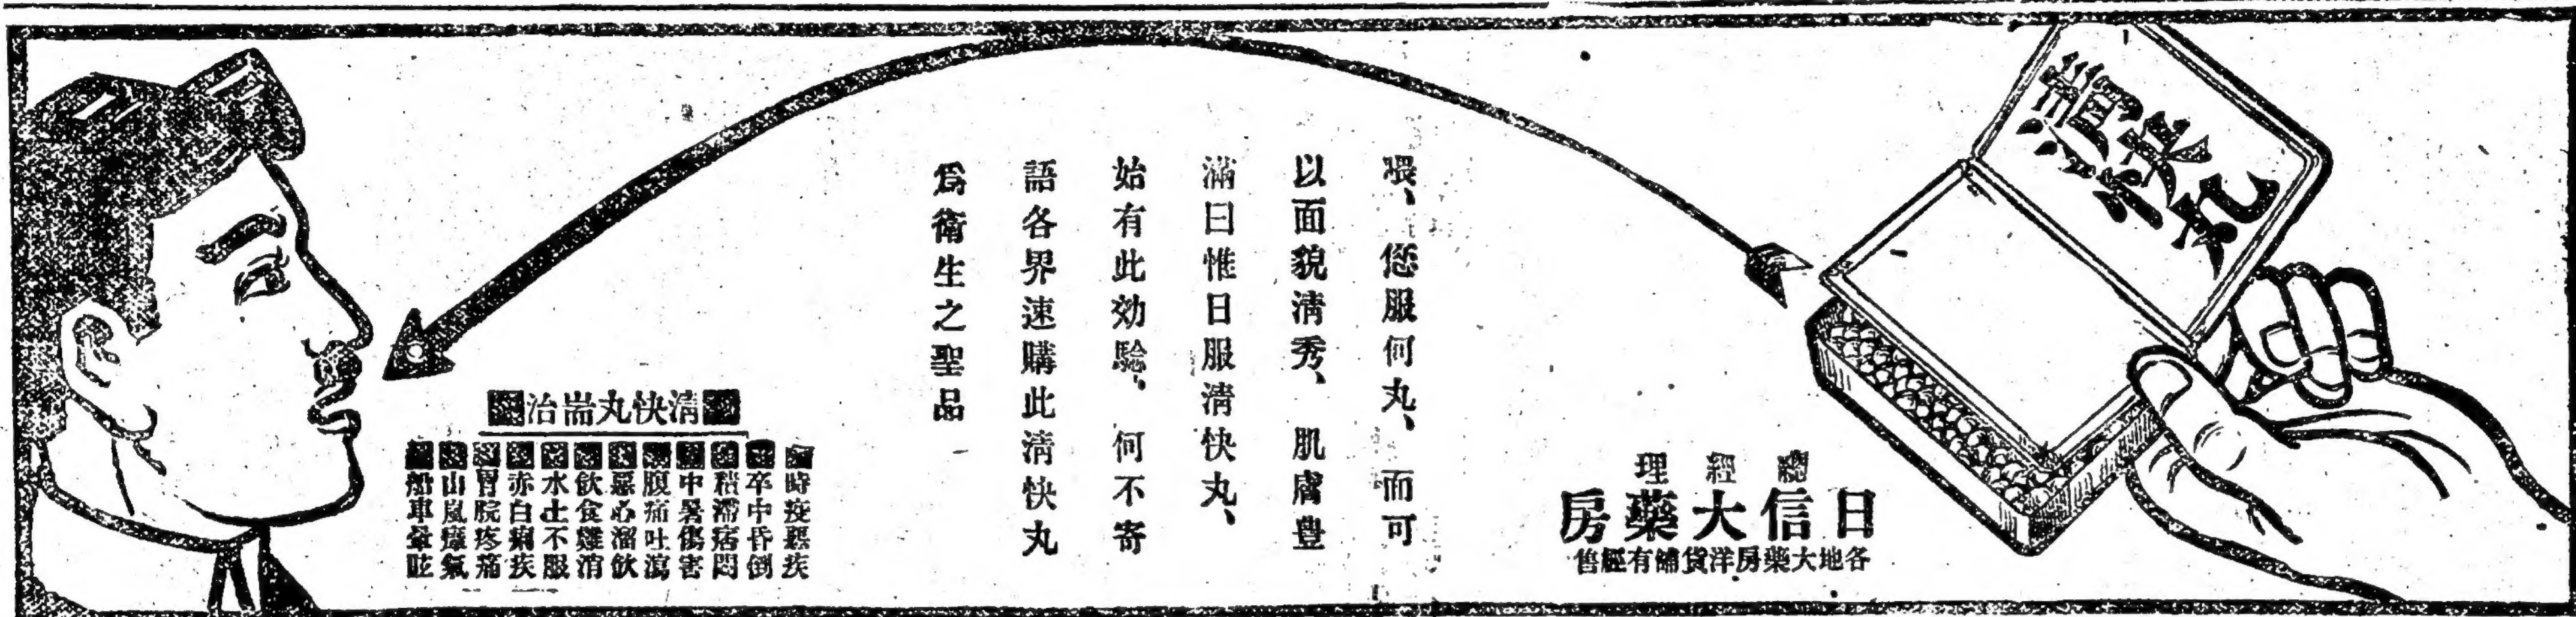 清快丸
喂、您服何丸、而可
以面貌清秀、肌膚豊
滿曰惟日服清快丸、
始有此効驗、何不寄
語各界速購此清快丸
爲衛生之聖品
總經理
日信大藥房
各地大藥房洋貨舖有經售
清快丸耑治
時疫惡疾
卒中昏倒
積滯痞悶
中暑傷害
腹痛吐瀉
惡心溜飲
飲食難消
水土不服
赤白痢疾
胃脘疼痛
山嵐瘴氣
船車暈眩